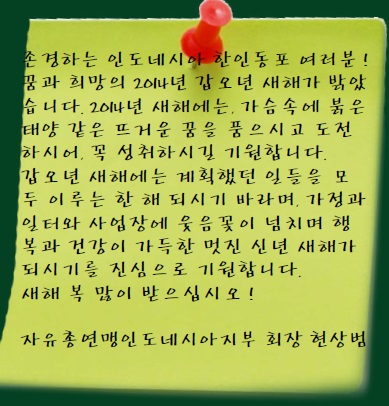 존경하는 인도네시아 한인동포 여러분!
꿈과 희망의 2014년 갑오년 새해가 밝았
습니다. 2014년 새해에는, 가슴속에 붉은
태양 같은 뜨거운 꿈을 품으시고 도전
하시어, 꼭 성취하시길 기원합니다.
갑오년 새해에는 계획했던 일들을 모
두 이루는 한 해 되시기 바라며, 가정과
일터와 사업장에 웃음꽃이 넘치며 행
복과 건강이 가득한 멋진 신년 새해가
되시기를 진심으로 기원합니다.
새해 복 많이 받으십시오!
자유총연맹인도네시아지부 회장 현상범